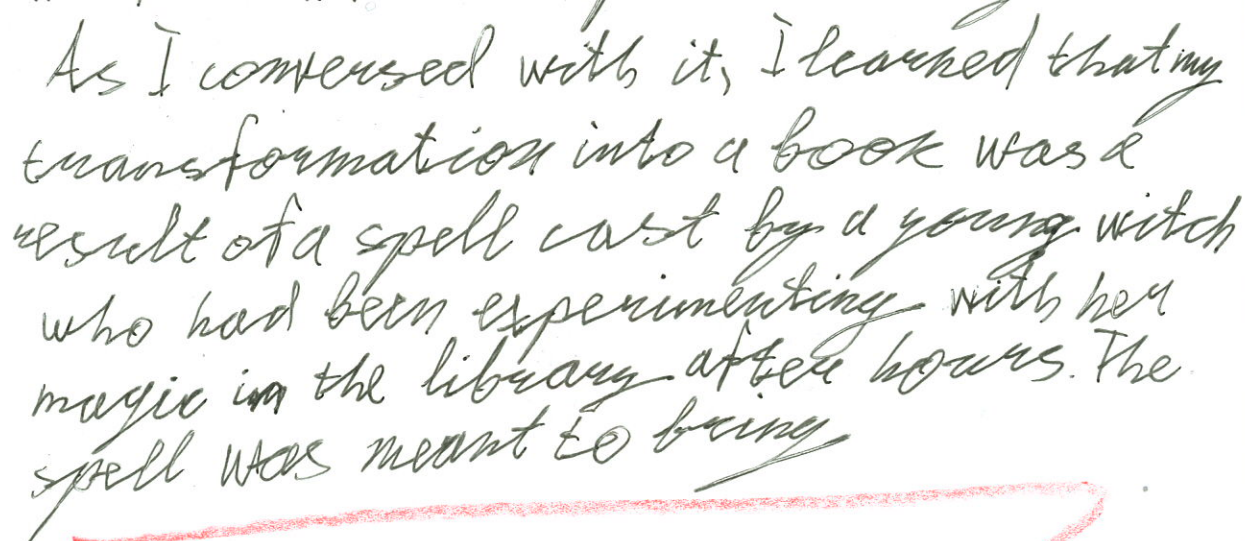 As I conversed with it, I learned that my
transformation into a book was a
result of a spell cast by a young witch
who had been experimenting with her
magic in the library after hours. The
spell was meant to bring